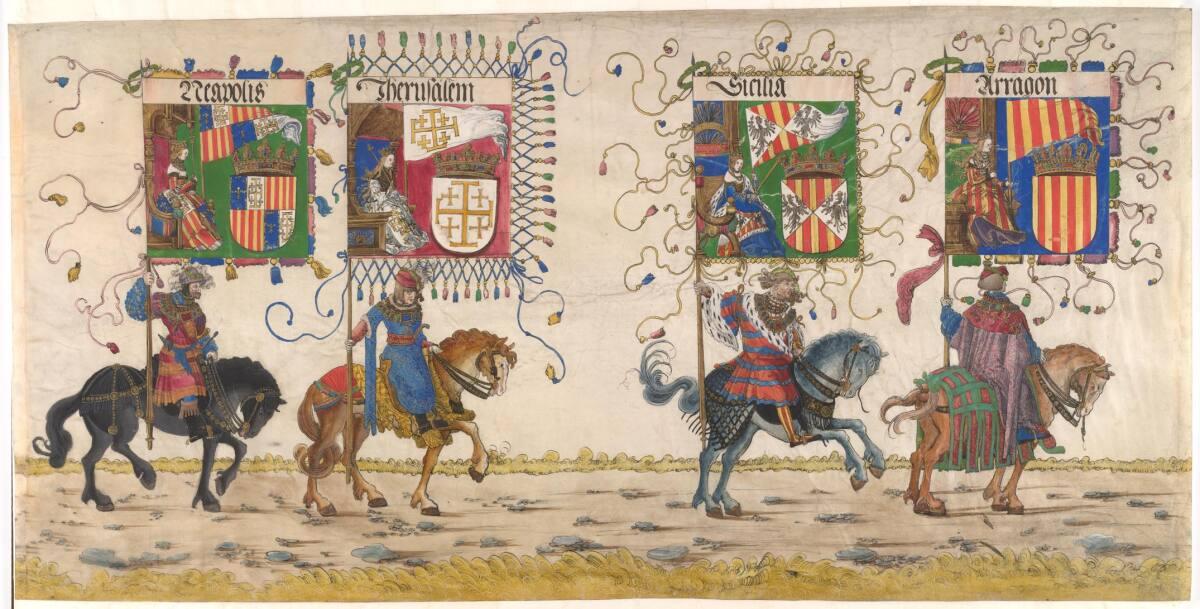 Neapolis
Jherusalem
Sicilia
Arragon